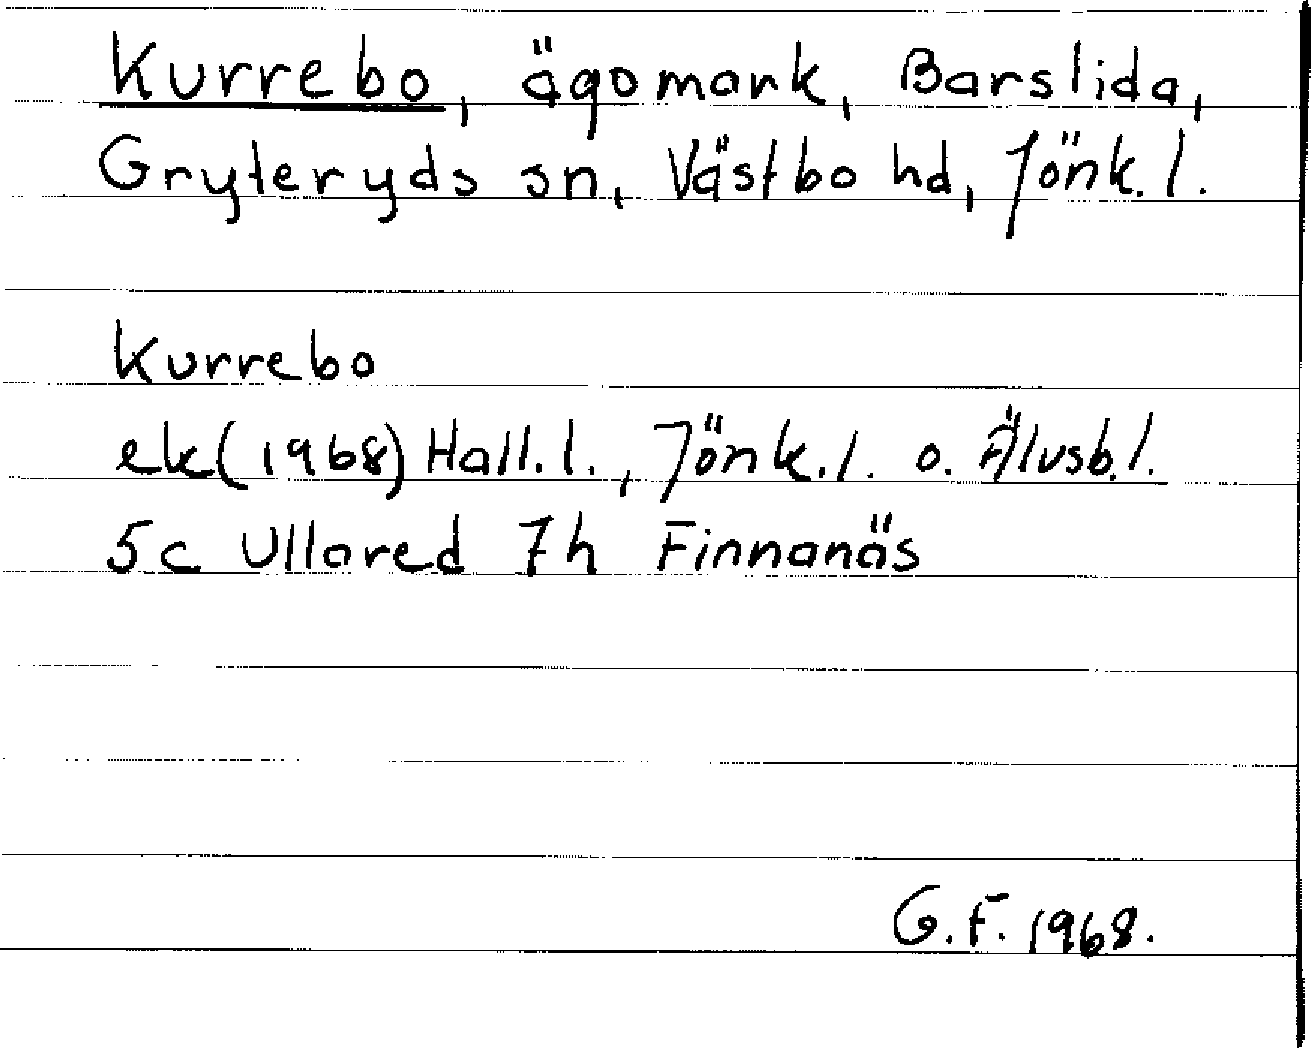 Kurrebo, ägomark, Barslida,
Gryteryds sn, Västbo hd, Jönk. l.
Kurrebo
ek (1968) Hall. l., Jönk. l. o. Älvsb. l.
5c Ullared 7h Finnanäs
G. F. 1968.